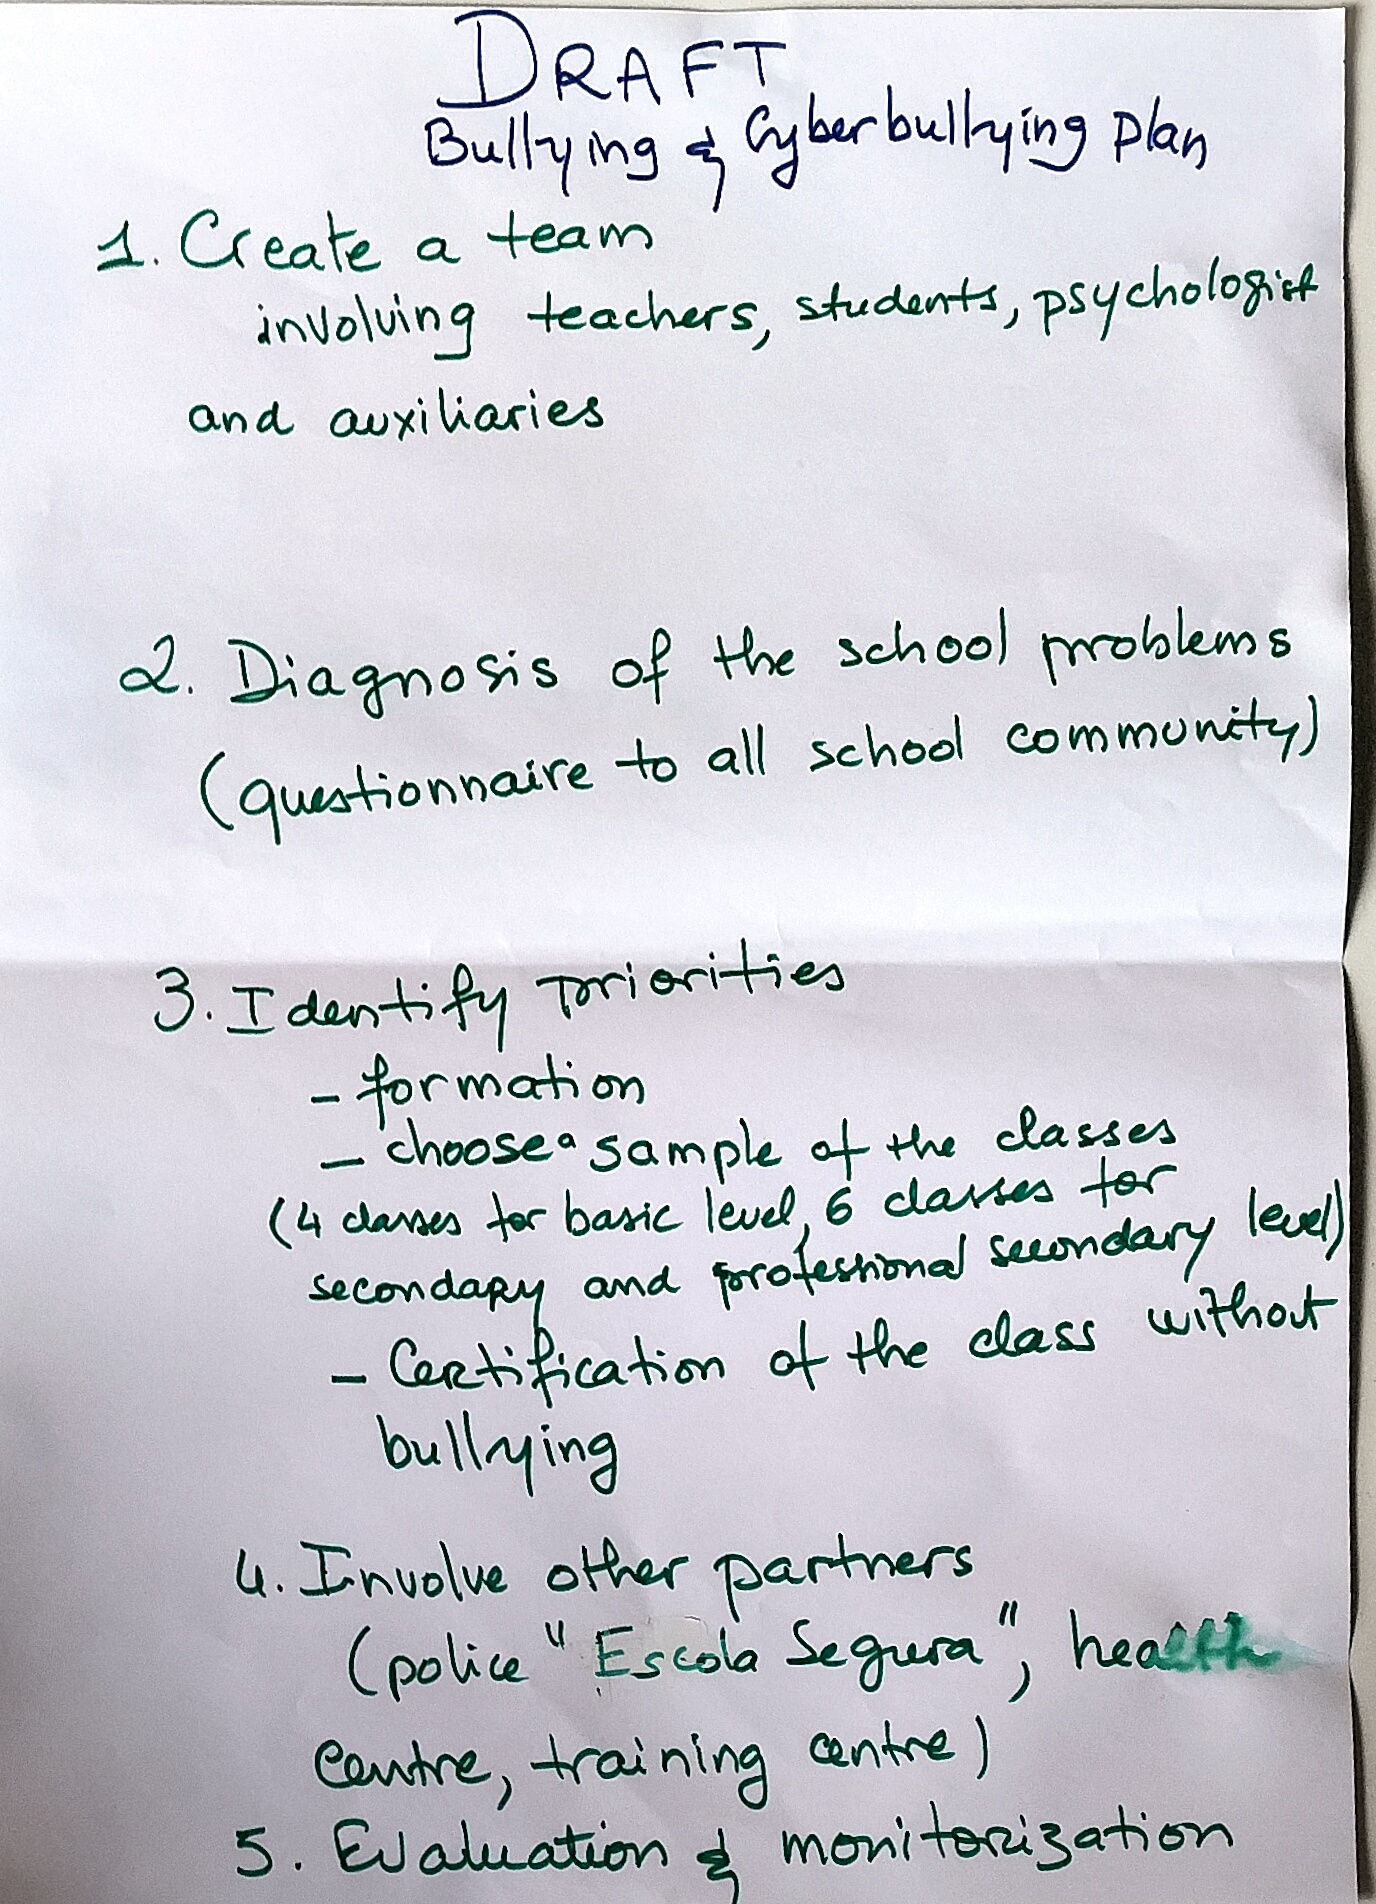 DRAFT
Bullying & Cyberbullying Plan
1. Create a team
involving teachers, students, psychologist
and auxiliaries
2. Diagnosis of the school problems
(questionnaire to all school community)
3. Identify priorities
- formation
- choose a sample of the classes
(4 classes for basic level, 6 classes for
secondary and professional secondary level)
- Certification of the class without
bullying
4. Involve other partners
(police "Escola Segura", health
centre, training centre)
5. Evaluation & monitorization